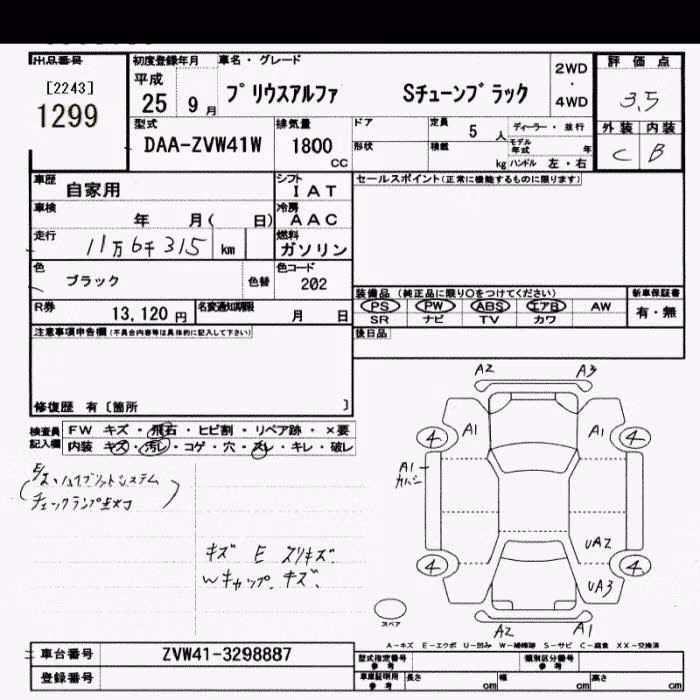 出品番号
[2243]
1299
初度登録年月
平成
25 9月
車名・グレード
プリウスアルファ Sチューンブラック
2WD
・
4WD
評価点
3.5
外装 内装
C B
型式
DAA-ZVW41W
排気量
1800
CC
ドア
形状
定員 5 人
積載 kg
ディーラー・並行
モデル年式 年
ハンドル 左・右
車歴
自家用
シフト
IAT
車検
年 月( 日)
冷房
AAC
走行
11万6千315 km
燃料
ガソリン
色
ブラック
色替
色コード
202
R券
13,120 円
名変通知期限
月 日
セールスポイント(正常に機能するものに限ります)
装備品 (純正品に限り○をつけてください)
PS PW ABS エアB AW
SR ナビ TV カワ
新車保証書
有・無
後日品
注意事項申告欄(不具合内容等は具体的に記入して下さい)
修復歴 有〔箇所 〕
検査員
記入欄
FW キズ・飛石・ヒビ割・リペア跡・×要
内装 キズ・汚レ・コゲ・穴・スレ・キレ・破レ
ハイブリットシステム
チェックランプ点灯
キズ E スリキズ.
Wキャップ.キズ.
A2 A3
A1 A1
4 4
A1
カハシ
UA2
4 4
UA3
A2 A1
スペア
A-キズ E-エクボ U-凹み W-補修跡 S-サビ C-腐食 XX-交換済
車台番号
ZVW41-3298887
登録番号
型式指定番号
参考
類別区分番号
参考
車庫証明用
参考
長さ cm 幅 cm 高さ cm